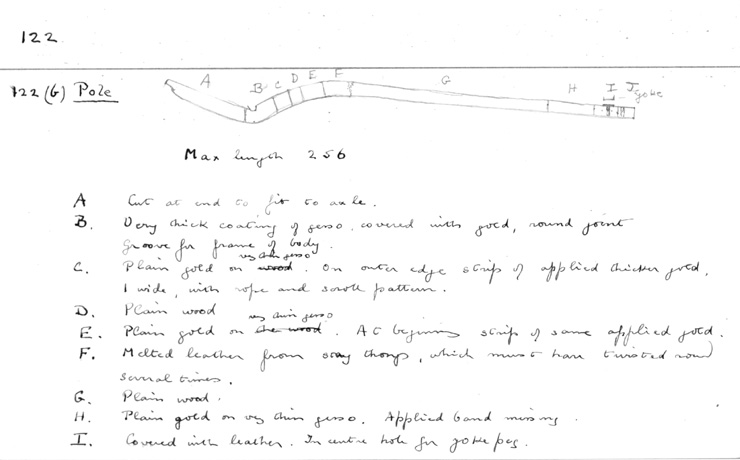 122
A B C D E F G H I J
yoke
122 (G) Pole
Max length 256
A Cut at end to fit to axle.
B. Very thick coating of gesso, covered with gold, round joint
groove for frame of body.
very thin gesso
C. Plain gold on wood. On outer edge strip of applied thicker gold,
1 wide, with rope and scroll pattern.
D. Plain wood
very thin gesso
E. Plain gold on the wood. At beginning strip of same applied gold.
F. Melted leather from thongs, which must have twisted round
several times.
G. Plain wood.
H. Plain gold on very thin gesso. Applied band missing.
I. Covered with leather. In centre hole for yoke peg.